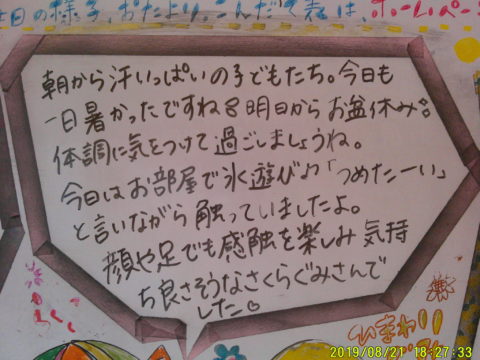 日の様子、おたより、こんだて表は、ホームペー
朝から汗いっぱいの子どもたち。今日も
一日暑かったですね 明日からお盆休み。
体調に気をつけて過ごしましょうね。
今日はお部屋で氷遊び♪「つめたーい」
と言いながら触っていましたよ。
顔や足でも感触を楽しみ気持
ち良さそうなさくらぐみさんで
した。
ひまわり
2019/08/21 18:27:33